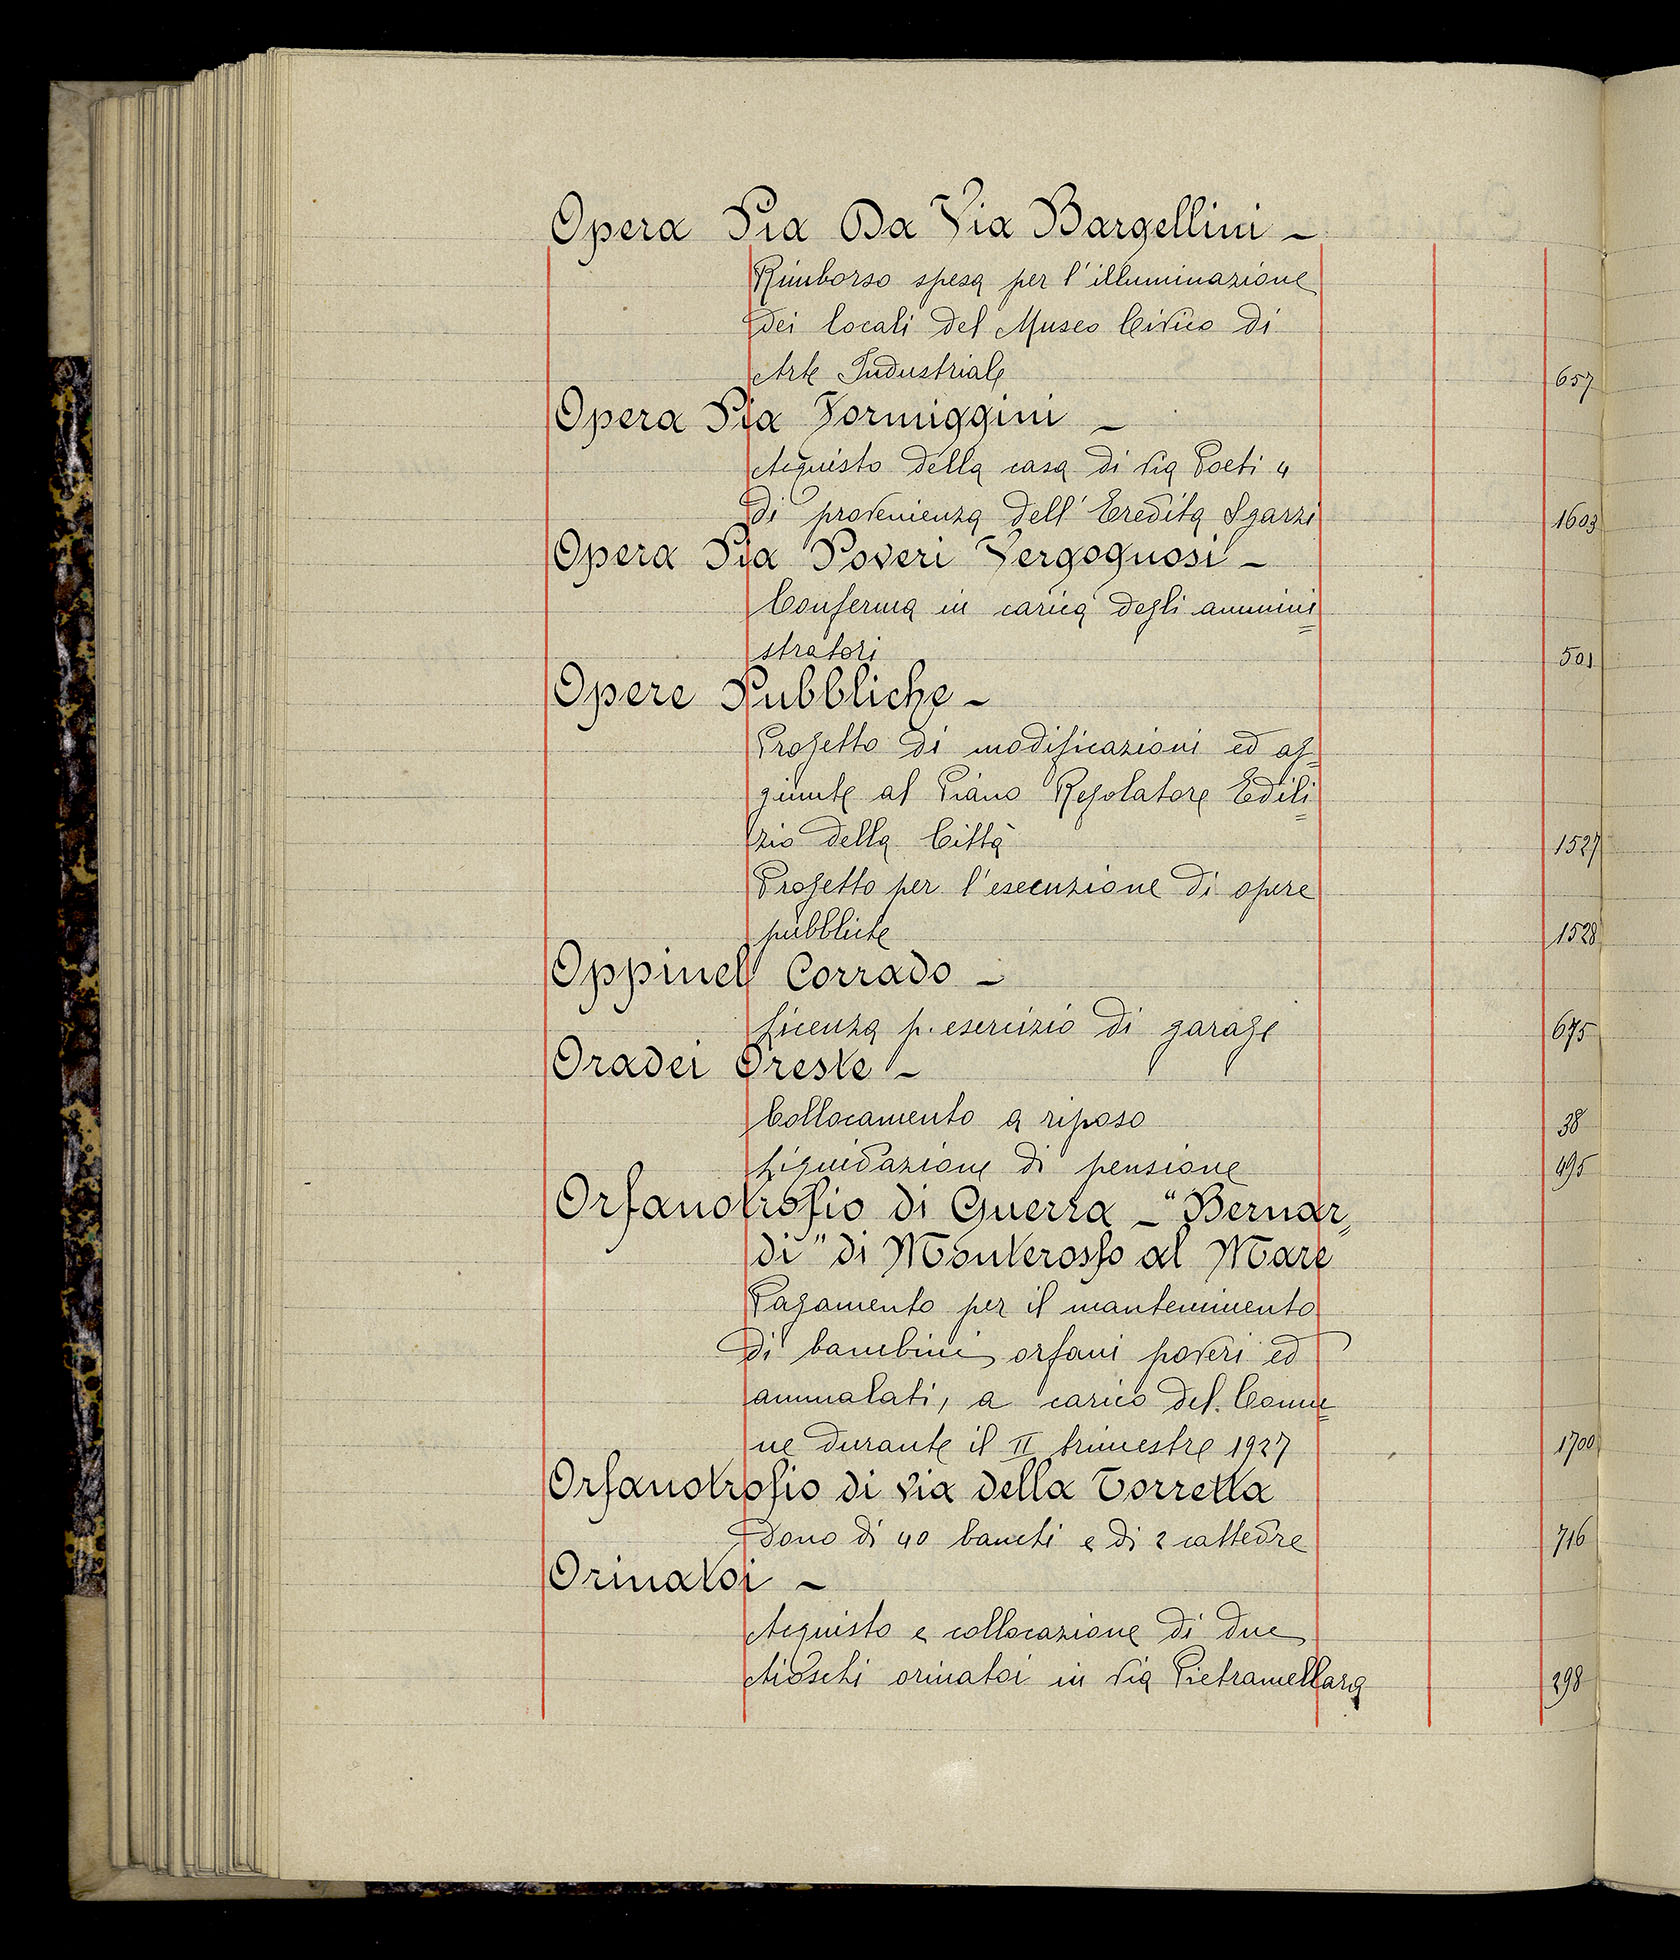 Opera Pia Da Via Bargellini –
Rimborso spesa per l'illuminazione
dei locali del Museo Civico di
Arte Industriale 657
Opera Pia Formiggini –
Acquisto della casa di via Poeti 4
di provenienza dell'Eredita Sgarzi 1603
Opera Pia Poveri Vergognosi –
Conferma in carica degli ammini=
stratori 501
Opere Pubbliche –
Progetto di modificazioni ed ag=
giunte al Piano Regolatore Edili=
zio della Città 1527
Progetto per l'esecuzione di opere
pubbliche 1528
Oppinel Corrado –
Licenza p. esercizio di garage 675
Oradei Oreste –
Collocamento a riposo 38
Liquidazione di pensione 495
Orfanotrofio di Guerra – "Bernar=
di" di Monterosso al Mare
Pagamento per il mantenimento
di bambini orfani poveri ed
ammalati, a carico del Comu=
ne durante il II trimestre 1927 1700
Orfanotrofio di via della Torretta
Dono di 40 banchi e di 2 cattedre 716
Orinatoi –
Acquisto e collocazione di due
chioschi orinatoi in via Pietramellara 298